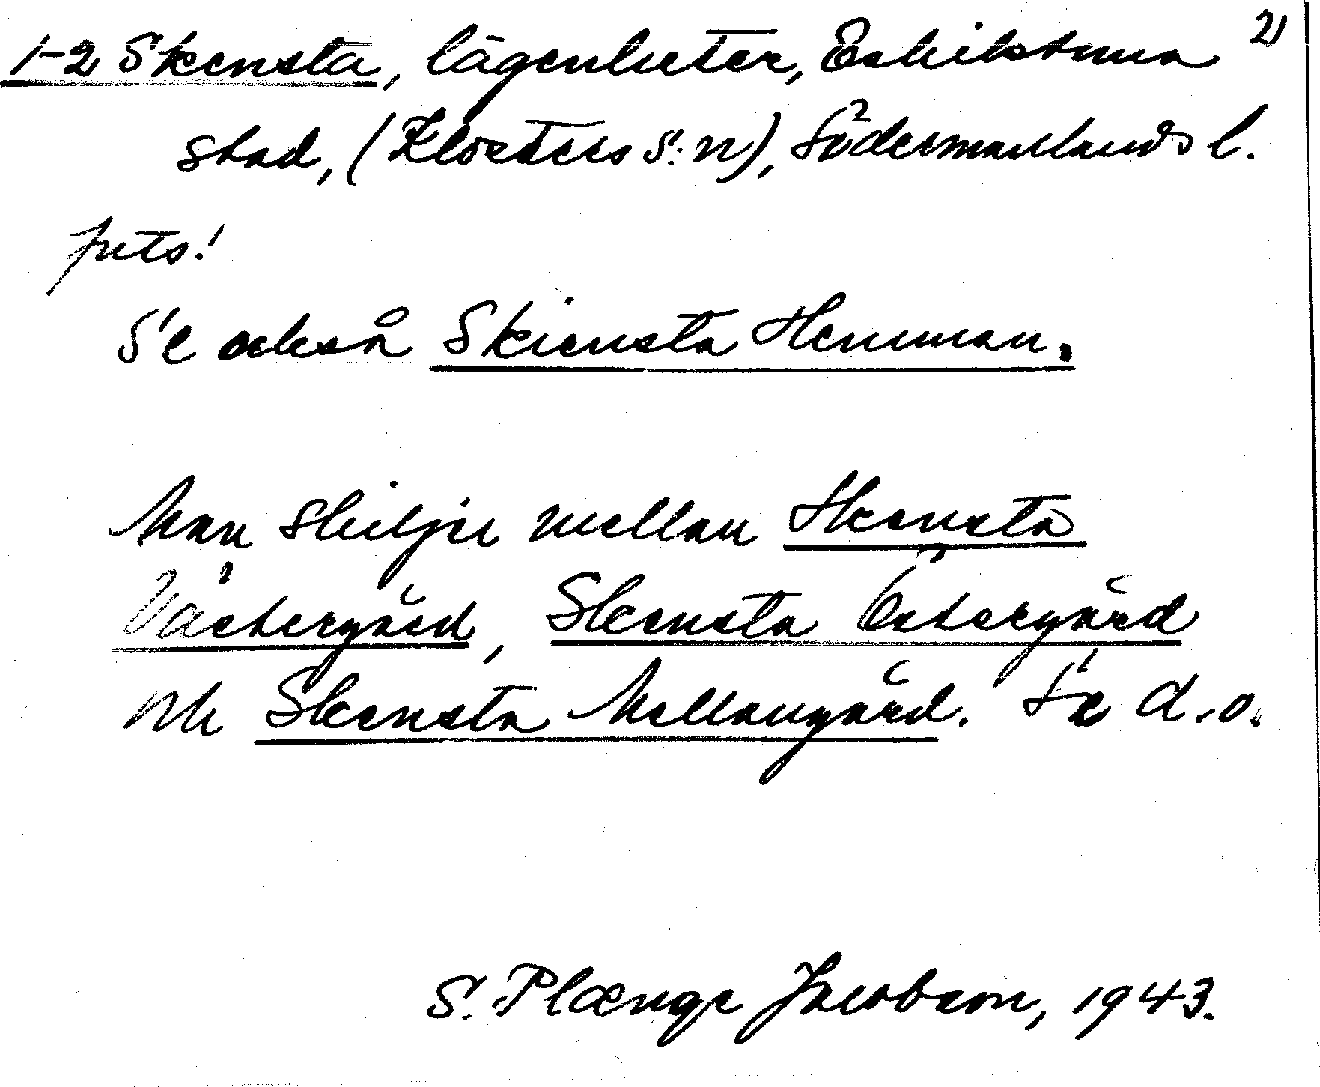 1-2 Skensta, lägenheter, Eskilstuna 2)
stad, (Klosters s:n), Södermanlands l.
forts!
Se också Skiensta Hemman.
Man skiljer mellan Skensta
Västergård, Skensta Östergård
och Skensta Mellangård. Se d.o.
S. Plænge Jacobson, 1943.